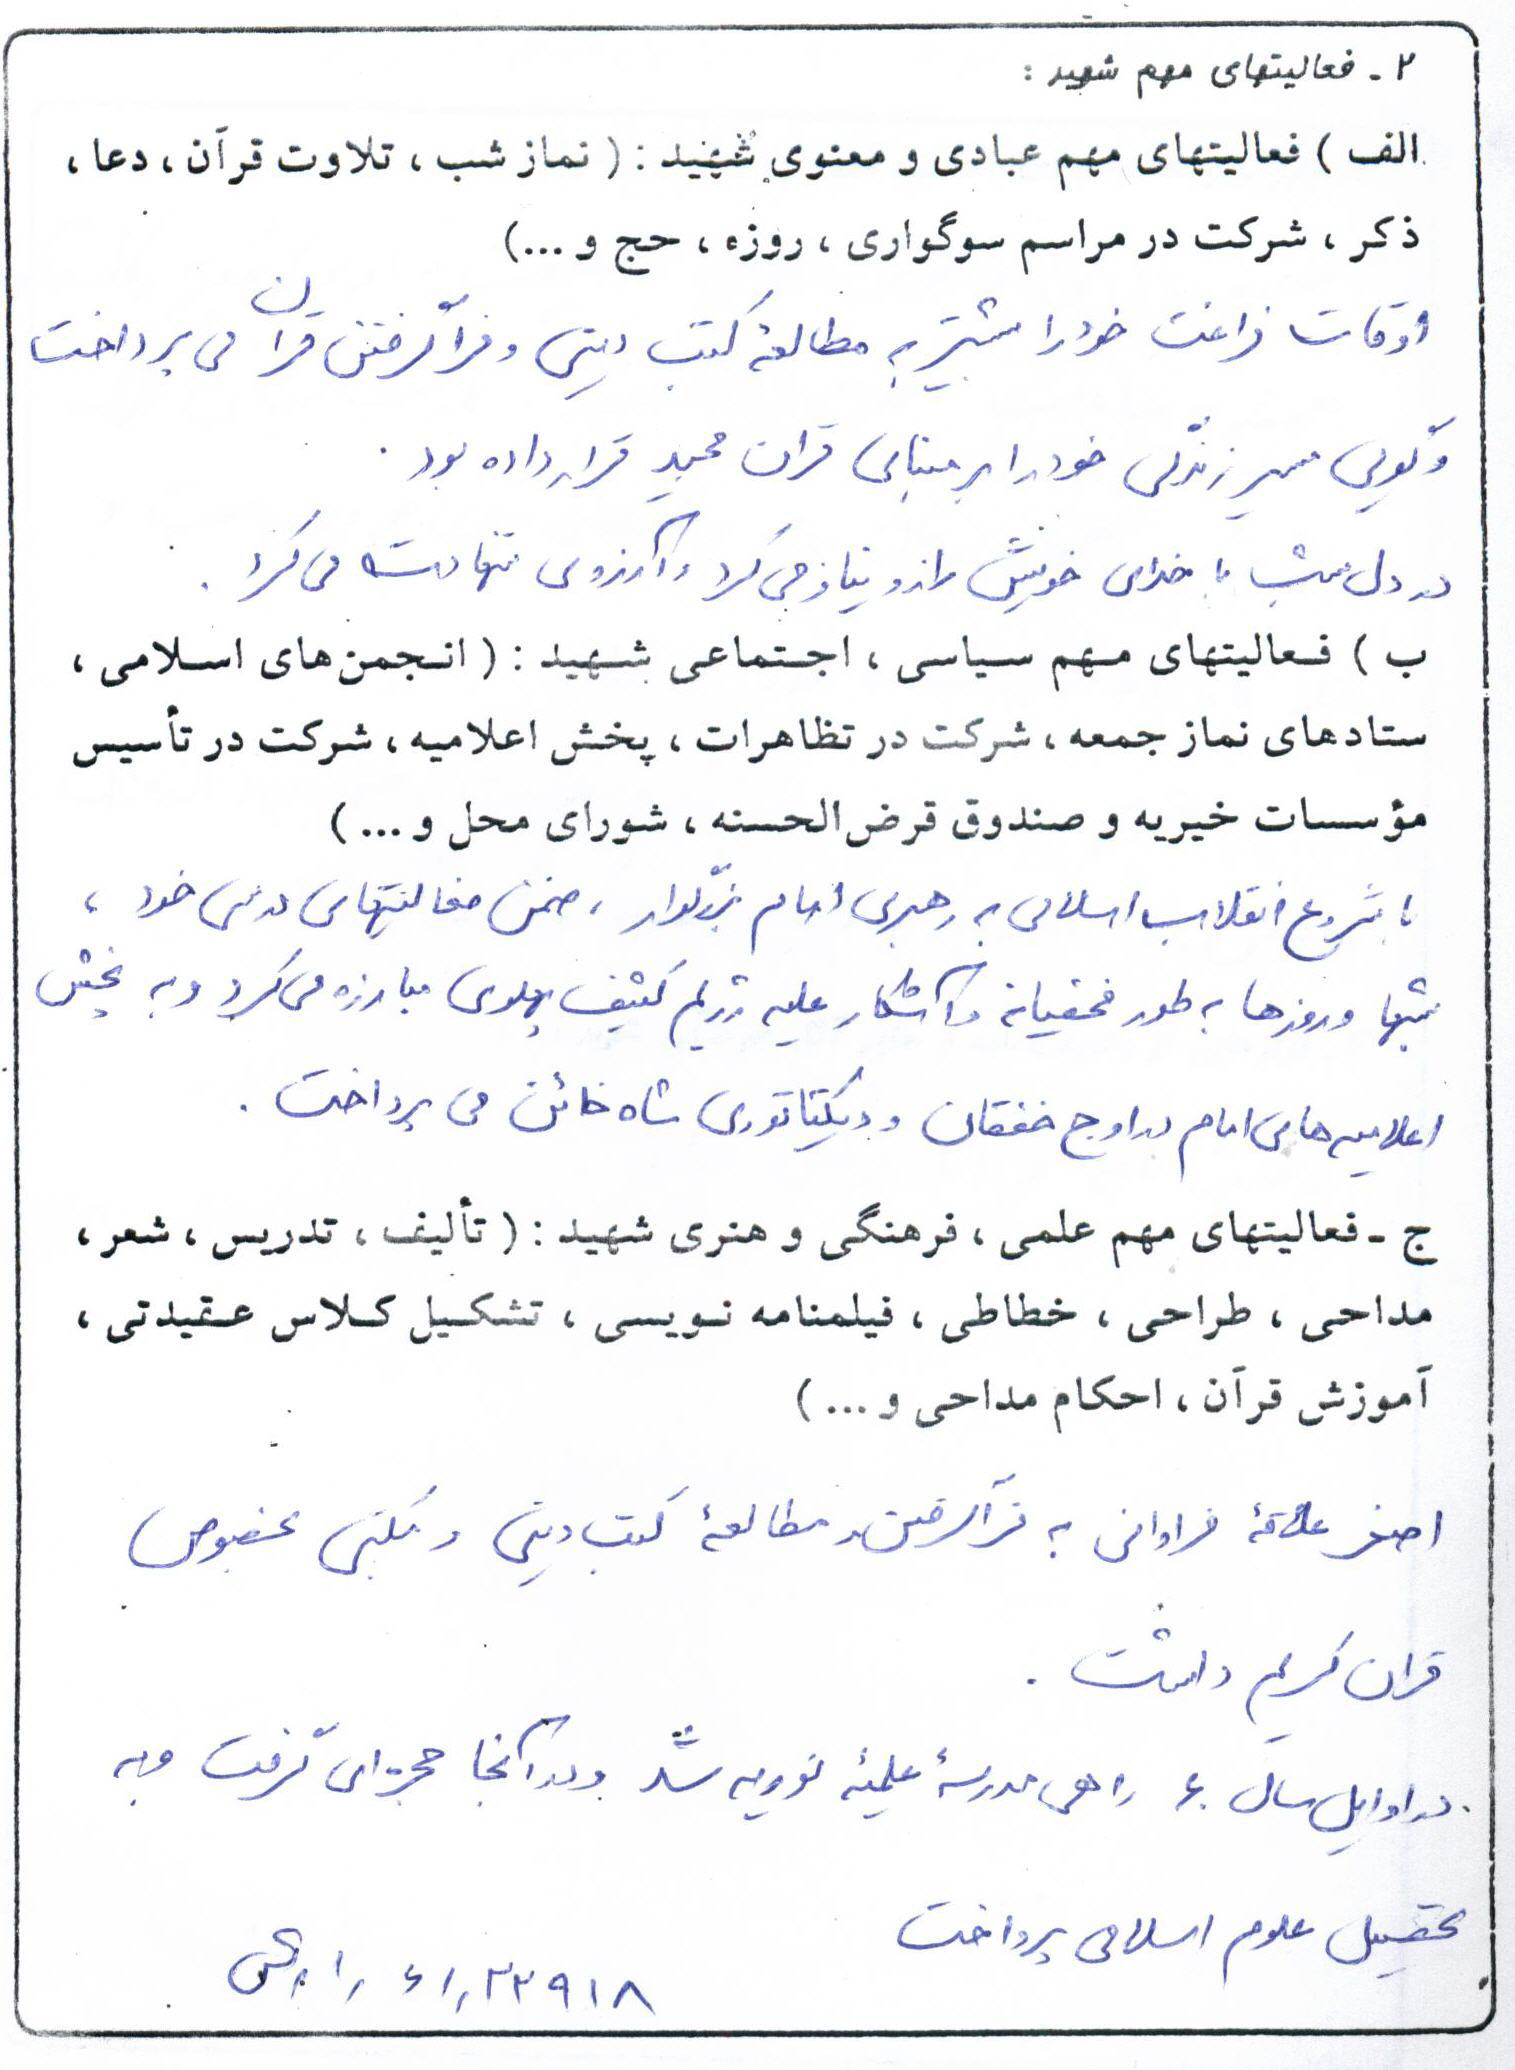 ۲ - فعالیتهای مهم شهید :
الف ) فعالیتهای مهم عبادی و معنوی شهید : ( نماز شب ، تلاوت قرآن ، دعا ،
ذکر ، شرکت در مراسم سوگواری ، روزه ، حج و ...)
اوقات فراغت خود را بیشتر به مطالعهٔ کتب دینی و فراگرفتن قرآن می پرداخت
و گویی مسیر زندگی خود را بر مبنای قرآن مجید قرار داده بود .
در دل شب با خدای خویش راز و نیاز می کرد و آرزوی شهادت می کرد .
ب ) فعالیتهای مهم سیاسی ، اجتماعی شهید : ( انجمن های اسلامی ،
ستادهای نماز جمعه ، شرکت در تظاهرات ، پخش اعلامیه ، شرکت در تأسیس
مؤسسات خیریه و صندوق قرض الحسنه ، شورای محل و ... )
با شروع انقلاب اسلامی به رهبری امام بزرگوار ، ضمن فعالیتهای درسی خود ،
شبها و روزها به طور مخفیانه و آشکار علیه رژیم کثیف پهلوی مبارزه می کرد و به پخش
اعلامیه های امام در اوج خفقان و دیکتاتوری شاه خائن می پرداخت .
ج - فعالیتهای مهم علمی ، فرهنگی و هنری شهید : ( تألیف ، تدریس ، شعر ،
مداحی ، طراحی ، خطاطی ، فیلمنامه نویسی ، تشکیل کلاس عقیدتی ،
آموزش قرآن ، احکام مداحی و ... )
اصغر علاقهٔ فراوانی به فراگرفتن و مطالعهٔ کتب دینی و مکتبی بخصوص
قرآن کریم داشت .
در اوایل سال ۶۰ راهی مدرسهٔ علمیهٔ نوریه شد و در آنجا حجره ای گرفت و به
تحصیل علوم اسلامی پرداخت
۲۲۹۱۸